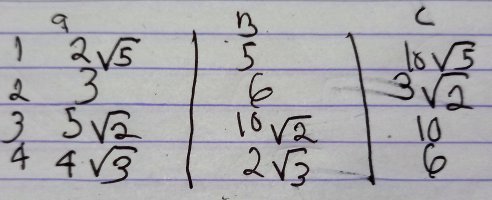 a B C
1 2√5 5 10√5
2 3 6 3√2
3 5√2 10√2 10
4 4√3 2√3 6